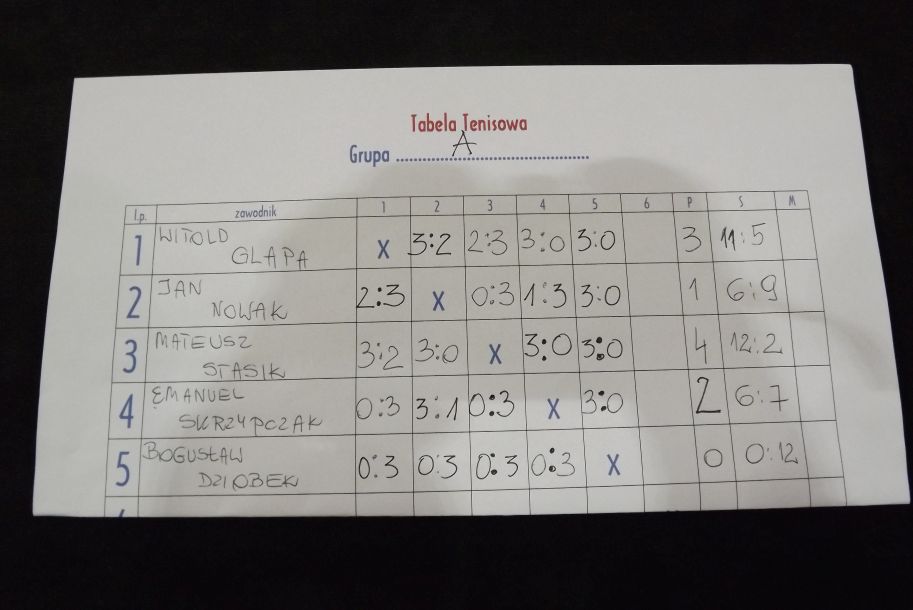 Tabela Tenisowa
Grupa A
l.p. zawodnik 1 2 3 4 5 6 P S M
1 WITOLD GLAPA X 3:2 2:3 3:0 3:0 3 11:5
2 JAN NOWAK 2:3 X 0:3 1:3 3:0 1 6:9
3 MATEUSZ STASIK 3:2 3:0 X 3:0 3:0 4 12:2
4 EMANUEL SKRZYPCZAK 0:3 3:1 0:3 X 3:0 2 6:7
5 BOGUSŁAW DZIOBEK 0:3 0:3 0:3 0:3 X 0 0:12